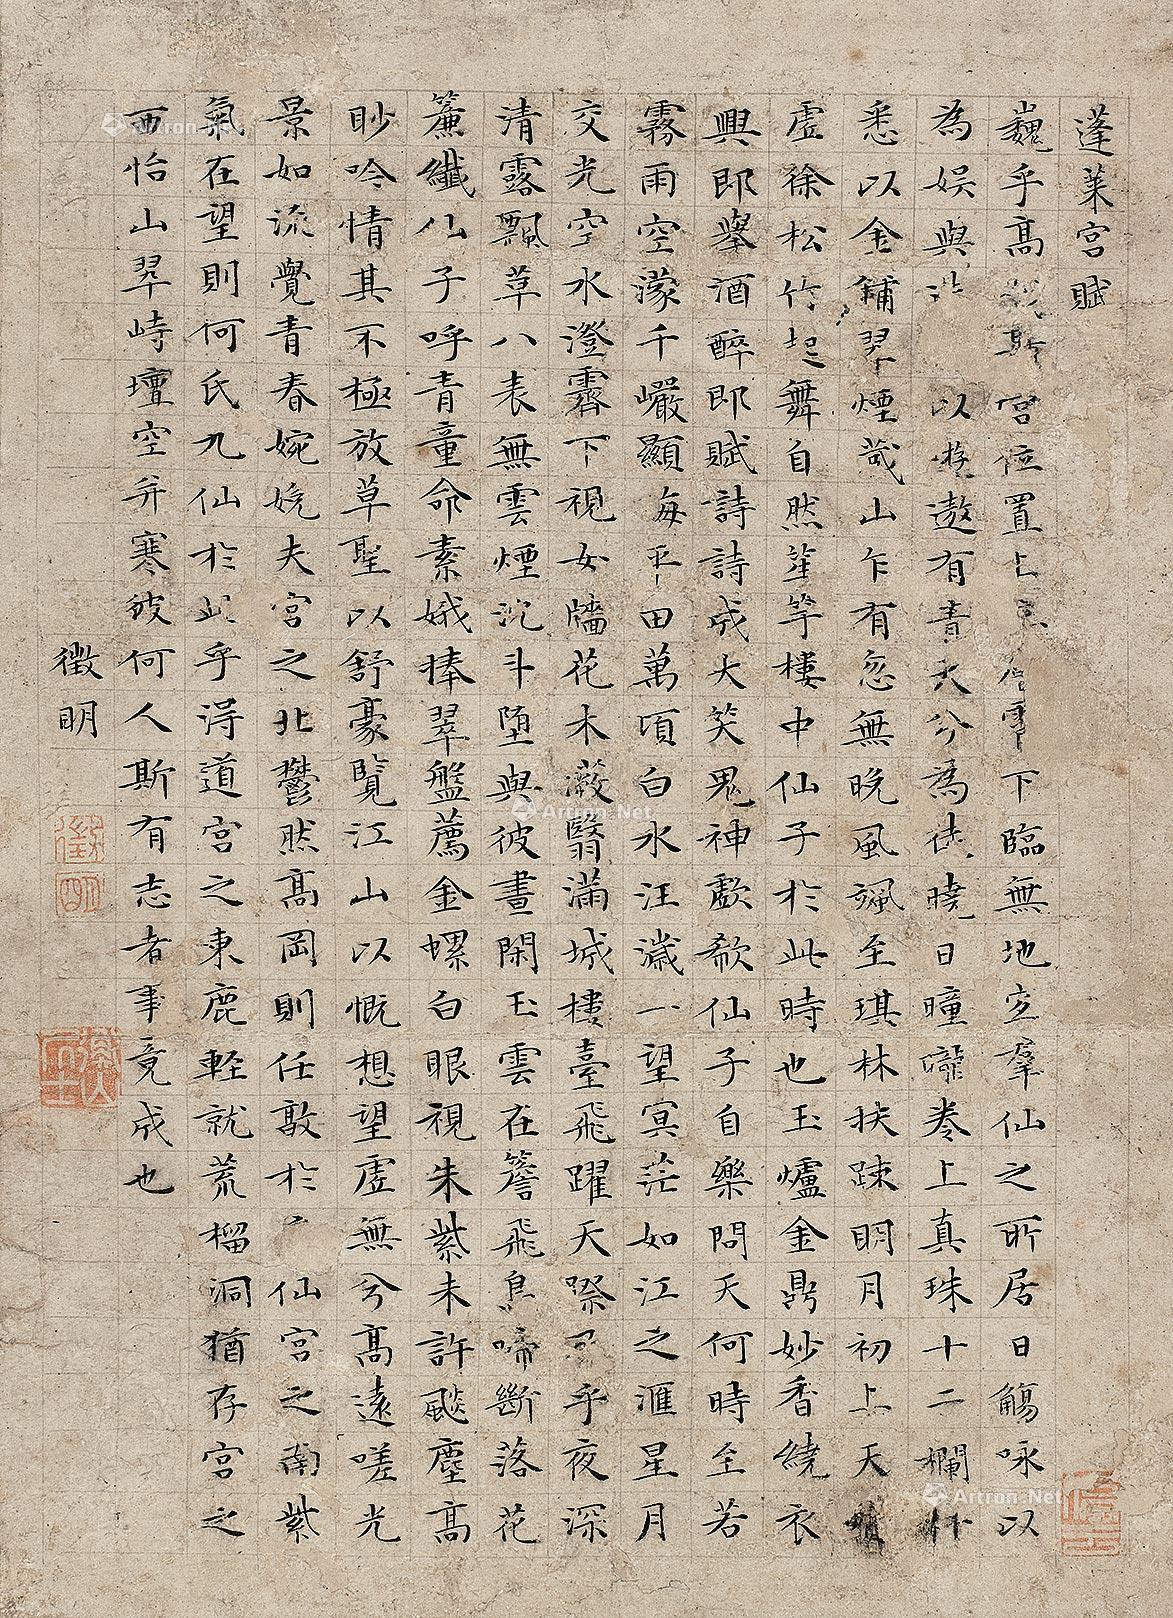 蓬萊宮賦
巍乎高哉斯宮位置上下臨無地空羣仙之所居日觴咏以
為娛與以遊遨有青天兮為徒曉日曈曨捲上真珠十二欄
悉以金鋪翠煙哉山乍有忽無晚風颯至琪林扶疎明月初上天
虛徐松竹起舞自然笙竽樓中仙子於此時也玉爐金鼎妙香繞衣
興即舉酒醉即賦詩詩成大笑鬼神歔欷仙子自樂問天何時至若
霧雨空濛千巖顯海平田萬頃白水汪濊一望冥茫如江之滙星月
交光空水澄霽下視女牆花木蔽翳滿城樓臺飛躍天際乎夜深
清露飄草八表無雲煙沉斗墮與彼晝閑玉雲在簷飛鳥啼斷落花
簾纖仙子呼青童命素娥捧翠盤薦金螺白眼視朱紫未許颷塵高
眇吟情其不極放草聖以舒豪覽江山以慨想望虛無兮高遠嗟光
景如流覺青春婉娩夫宮之北鬱然高岡則任敦於仙宮之南紫
氣在望則何氏九仙於此乎得道宮之東鹿輕就荒榴洞猶存宮之
西怡山翠峙壇空井寒彼何人斯有志者事竟成也
徵明
徵明
Artron.Net
Artron.Net
Artron.Net